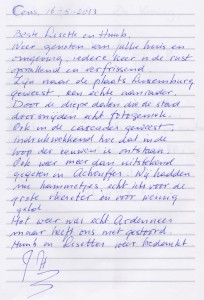 16-5-2013
Beste Lisette en Huub.
Weer genoten van jullie huis en
omgeving, iedere keer is de rust
opvallend en verfrissend
Zijn naar de plaats Luxemburg
geweest, een echte aanrader.
Door de diepe dalen die de stad
doorsnijden echt fotogeniek.
Ook in de cascades geweest,
indrukwekkend hoe dat in de
loop der eeuwen is ontstaan.
Ook weer meer dan uitstekend
gegeten in Achouffe. Wij hadden
nu hammetjes, echt iets voor de
grote eter en voor weinig
geld
Het weer was echt Ardennees
maar heeft ons niet gestoord.
Huub en Lisette zeer bedankt